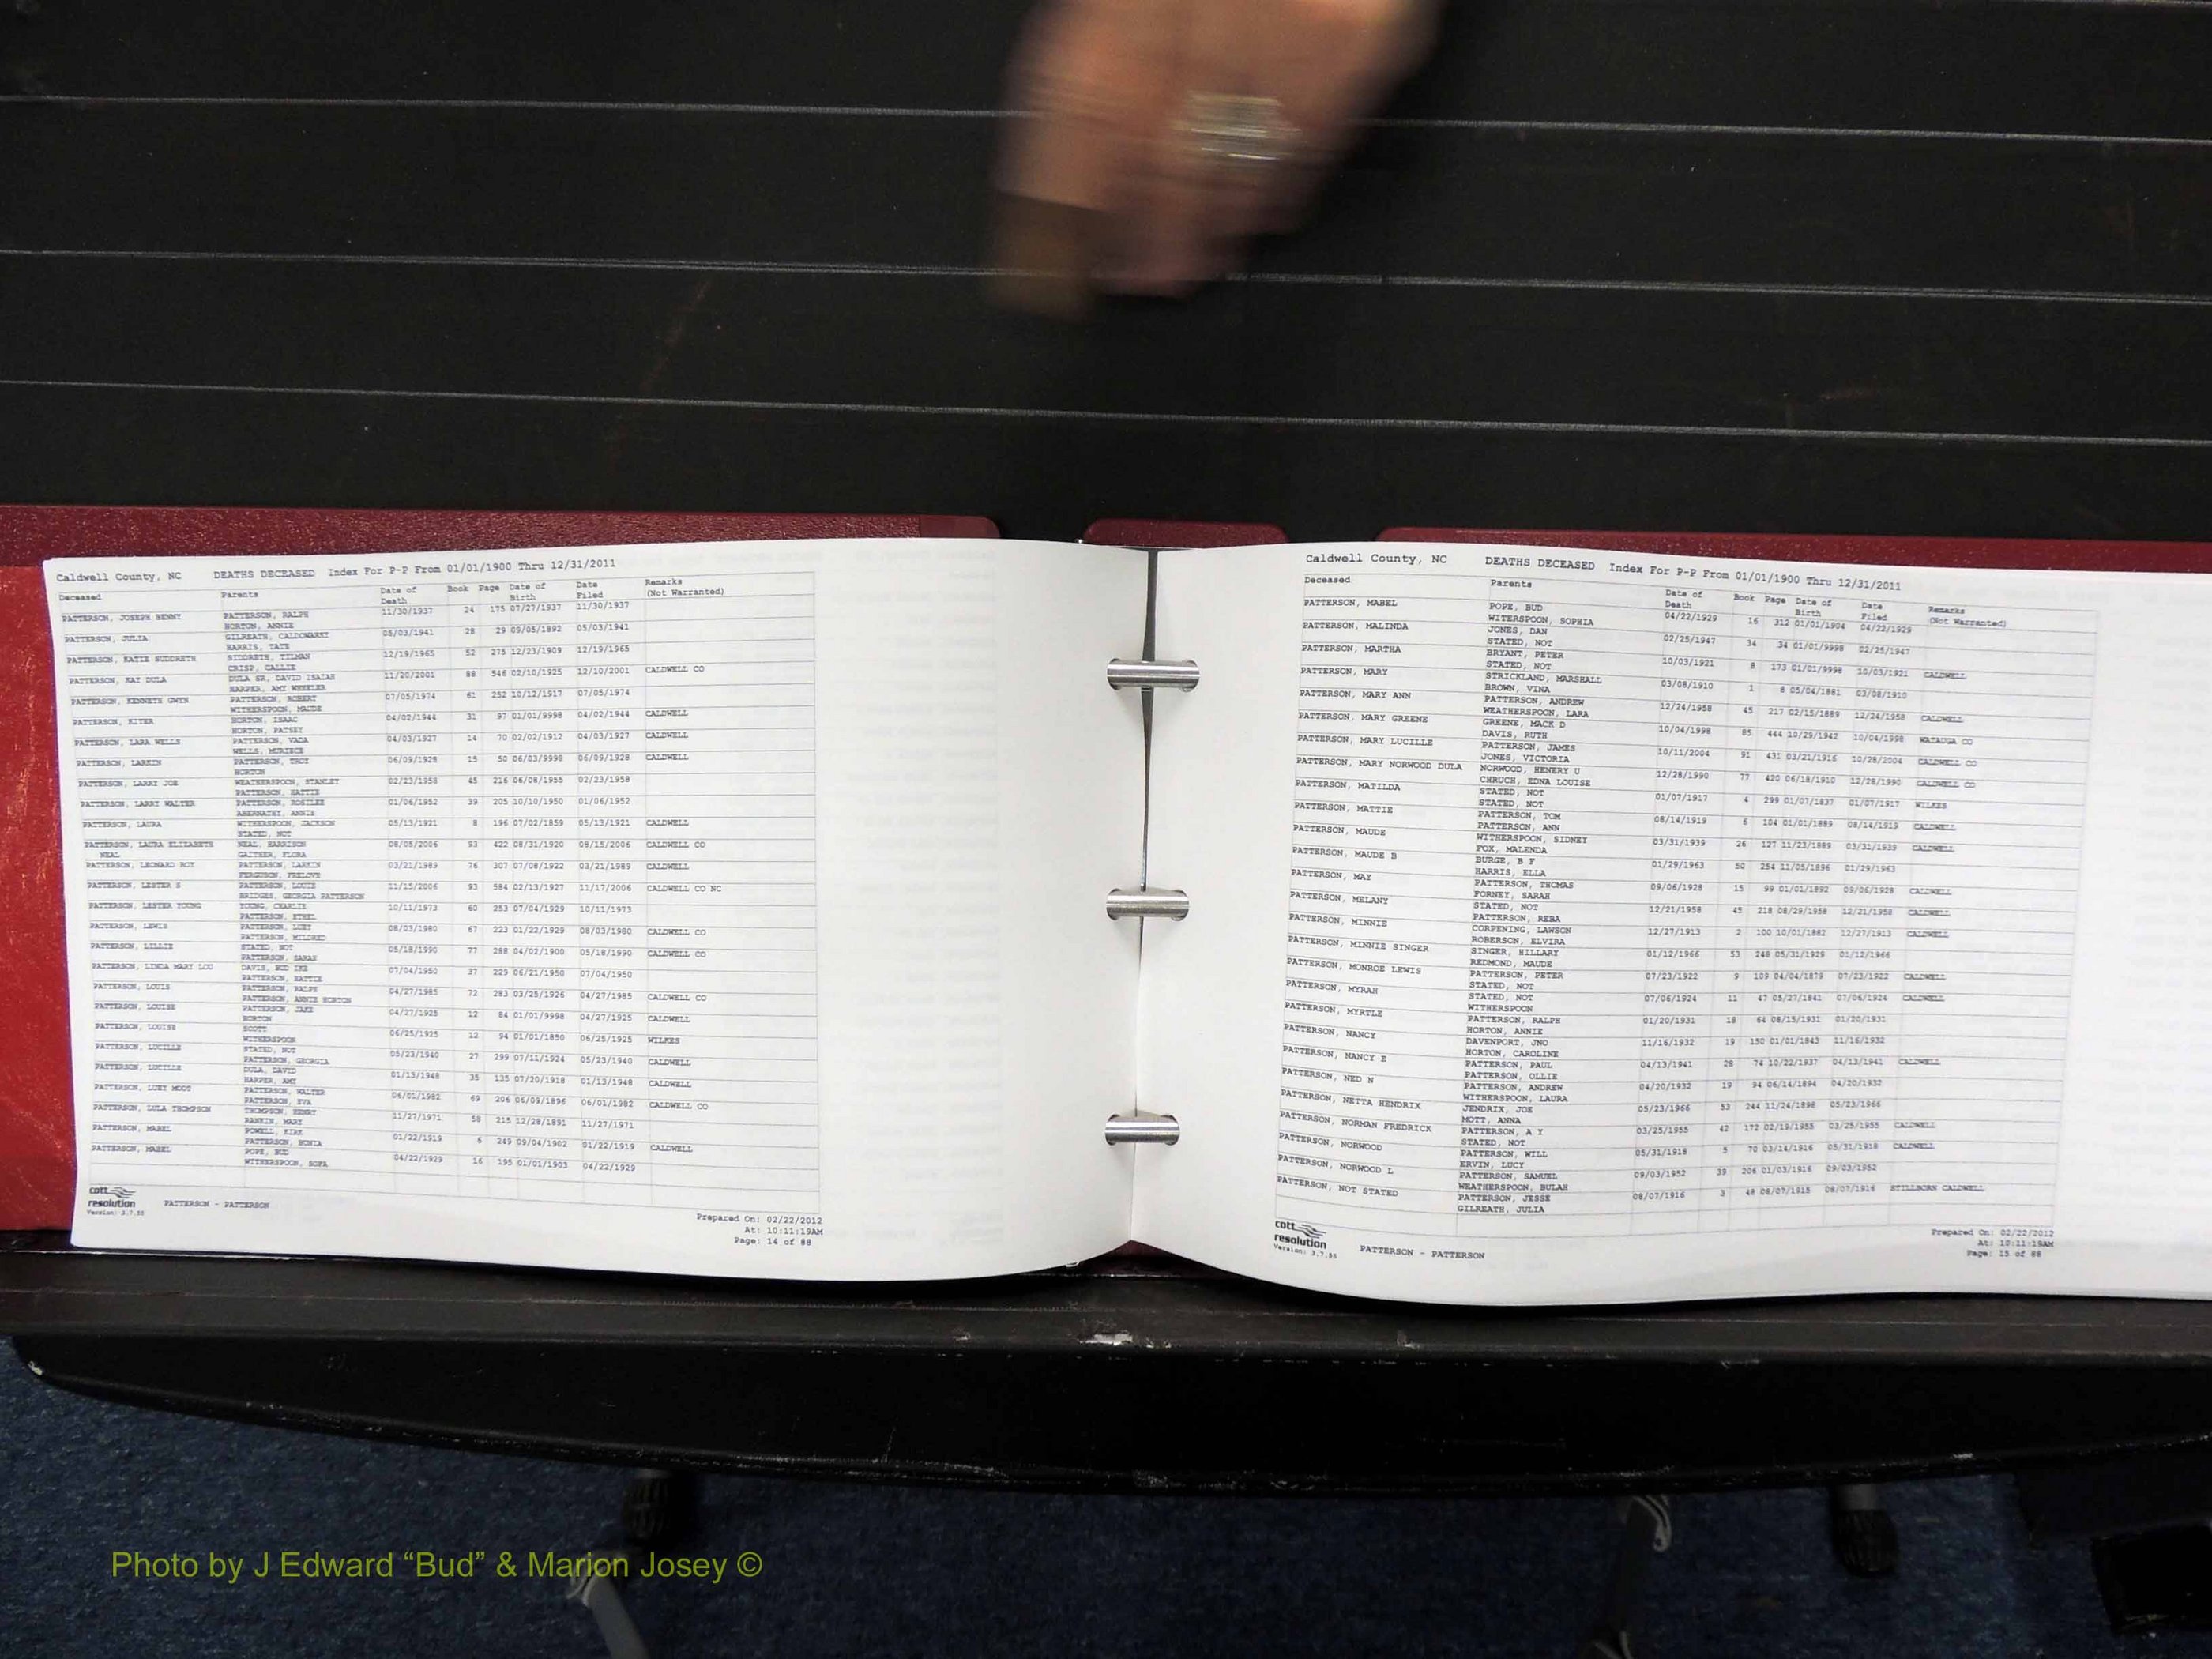 Caldwell County, NC DEATHS DECEASED Index For P-P From 01/01/1900 Thru 12/31/2011
Deceased Parents Date of Death Book Page Date of Birth Date Filed Remarks (Not Warranted)
PATTERSON, JOSEPH BENNY PATTERSON, RALPH 11/30/1937 24 175 07/27/1937 11/30/1937
HORTON, ANNIE
PATTERSON, JULIA GILREATH, CALDOWARKY 05/03/1941 28 29 09/05/1892 05/03/1941
HARRIS, TATE
PATTERSON, KATIE SUDDRETH SIDDRETH, TILMAN 12/19/1965 52 275 12/23/1909 12/19/1965
CRISP, CALLIE
PATTERSON, KAY DULA DULA SR, DAVID ISAIAH 11/20/2001 88 546 02/10/1925 12/10/2001 CALDWELL CO
HARPER, AMY WHEELER
PATTERSON, KENNETH GWYN PATTERSON, ROBERT 07/05/1974 61 252 10/12/1917 07/05/1974
WITHERSPOON, MAUDE
PATTERSON, KITER HORTON, ISAAC 04/02/1944 31 97 01/01/9998 04/02/1944 CALDWELL
HORTON, PATSEY
PATTERSON, LARA WELLS PATTERSON, VADA 04/03/1927 14 70 02/02/1912 04/03/1927 CALDWELL
WELLS, MORIECE
PATTERSON, LARKIN PATTERSON, TROY 06/09/1928 15 50 06/03/9998 06/09/1928 CALDWELL
HORTON
PATTERSON, LARRY JOE WEATHERSPOON, STANLEY 02/23/1958 45 216 06/08/1955 02/23/1958
PATTERSON, HATTIE
PATTERSON, LARRY WALTER PATTERSON, ROSILEE 01/06/1952 39 205 10/10/1950 01/06/1952
ABERNATHY, ANNIE
PATTERSON, LAURA WITHERSPOON, JACKSON 05/13/1921 8 196 07/02/1859 05/13/1921 CALDWELL
STATED, NOT
PATTERSON, LAURA ELIZABETH NEAL, HARRISON 08/05/2006 93 422 08/31/1920 08/15/2006 CALDWELL CO
NEAL GAITHER, FLORA
PATTERSON, LEONARD ROY PATTERSON, LARKIN 03/21/1989 76 307 07/08/1922 03/21/1989 CALDWELL
FERGUSON, FRELOVE
PATTERSON, LESTER S PATTERSON, LOUIE 11/15/2006 93 584 02/13/1927 11/17/2006 CALDWELL CO NC
BRIDGES, GEORGIA PATTERSON
PATTERSON, LESTER YOUNG YOUNG, CHARLIE 10/11/1973 60 253 07/04/1929 10/11/1973
PATTERSON, ETHEL
PATTERSON, LEWIS PATTERSON, LUEY 08/03/1980 67 223 01/22/1929 08/03/1980 CALDWELL CO
PATTERSON, MILDRED
PATTERSON, LILLIE STATED, NOT 05/18/1990 77 288 04/02/1900 05/18/1990 CALDWELL CO
PATTERSON, SARAH
PATTERSON, LINDA MARY LOU DAVIS, BUD IKE 07/04/1950 37 229 06/21/1950 07/04/1950
PATTERSON, HATTIE
PATTERSON, LOUIS PATTERSON, RALPH 04/27/1985 72 283 03/25/1926 04/27/1985 CALDWELL CO
PATTERSON, ANNIE HORTON
PATTERSON, LOUISE PATTERSON, JAKE 04/27/1925 12 84 01/01/9998 04/27/1925 CALDWELL
HORTON
PATTERSON, LOUISE SCOTT 06/25/1925 12 94 01/01/1850 06/25/1925 WILKES
WITHERSPOON
PATTERSON, LUCILLE STATED, NOT 05/23/1940 27 299 07/11/1924 05/23/1940 CALDWELL
PATTERSON, GEORGIA
PATTERSON, LUCILLE DULA, DAVID 01/13/1948 35 135 07/20/1918 01/13/1948 CALDWELL
HARPER, AMY
PATTERSON, LUEY MOOT PATTERSON, WALTER 06/01/1982 69 206 06/09/1896 06/01/1982 CALDWELL CO
PATTERSON, EVA
PATTERSON, LULA THOMPSON THOMPSON, HENRY 11/27/1971 58 215 12/28/1891 11/27/1971
RANKIN, MARY
PATTERSON, MABEL POWELL, KIRK 01/22/1919 6 249 09/04/1902 01/22/1919 CALDWELL
PATTERSON, BONIA
PATTERSON, MABEL POPE, BUD 04/22/1929 16 195 01/01/1903 04/22/1929
WITHERSPOON, SOFA
cott
resolution PATTERSON - PATTERSON
Version: 3.7.55
Prepared On: 02/22/2012
At: 10:11:19AM
Page: 14 of 88
Caldwell County, NC DEATHS DECEASED Index For P-P From 01/01/1900 Thru 12/31/2011
Deceased Parents Date of Death Book Page Date of Birth Date Filed Remarks (Not Warranted)
PATTERSON, MABEL POPE, BUD 04/22/1929 16 312 01/01/1904 04/22/1929
WITERSPOON, SOPHIA
PATTERSON, MALINDA JONES, DAN 02/25/1947 34 34 01/01/9998 02/25/1947
STATED, NOT
PATTERSON, MARTHA BRYANT, PETER 10/03/1921 8 173 01/01/9998 10/03/1921 CALDWELL
STATED, NOT
PATTERSON, MARY STRICKLAND, MARSHALL 03/08/1910 1 8 05/04/1881 03/08/1910
BROWN, VINA
PATTERSON, MARY ANN PATTERSON, ANDREW 12/24/1958 45 217 02/15/1889 12/24/1958 CALDWELL
WEATHERSPOON, LARA
PATTERSON, MARY GREENE GREENE, MACK D 10/04/1998 85 444 10/29/1942 10/04/1998 WATAUGA CO
DAVIS, RUTH
PATTERSON, MARY LUCILLE PATTERSON, JAMES 10/11/2004 91 431 03/21/1916 10/28/2004 CALDWELL CO
JONES, VICTORIA
PATTERSON, MARY NORWOOD DULA NORWOOD, HENERY U 12/28/1990 77 420 06/18/1910 12/28/1990 CALDWELL CO
CHRUCH, EDNA LOUISE
PATTERSON, MATILDA STATED, NOT 01/07/1917 4 299 01/07/1837 01/07/1917 WILKES
STATED, NOT
PATTERSON, MATTIE PATTERSON, TOM 08/14/1919 6 104 01/01/1889 08/14/1919 CALDWELL
PATTERSON, ANN
PATTERSON, MAUDE WITHERSPOON, SIDNEY 03/31/1939 26 127 11/23/1889 03/31/1939 CALDWELL
FOX, MALENDA
PATTERSON, MAUDE B BURGE, B F 01/29/1963 50 254 11/05/1896 01/29/1963
HARRIS, ELLA
PATTERSON, MAY PATTERSON, THOMAS 09/06/1928 15 99 01/01/1892 09/06/1928 CALDWELL
FORNEY, SARAH
PATTERSON, MELANY STATED, NOT 12/21/1958 45 218 08/29/1958 12/21/1958 CALDWELL
PATTERSON, REBA
PATTERSON, MINNIE CORPENING, LAWSON 12/27/1913 2 100 10/01/1882 12/27/1913 CALDWELL
ROBERSON, ELVIRA
PATTERSON, MINNIE SINGER SINGER, HILLARY 01/12/1966 53 248 05/31/1929 01/12/1966
REDMOND, MAUDE
PATTERSON, MONROE LEWIS PATTERSON, PETER 07/23/1922 9 109 04/04/1879 07/23/1922 CALDWELL
STATED, NOT
PATTERSON, MYRAH STATED, NOT 07/06/1924 11 47 05/27/1841 07/06/1924 CALDWELL
WITHERSPOON
PATTERSON, MYRTLE PATTERSON, RALPH 01/20/1931 18 64 08/15/1931 01/20/1931
HORTON, ANNIE
PATTERSON, NANCY DAVENPORT, JNO 11/16/1932 19 150 01/01/1843 11/16/1932
HORTON, CAROLINE
PATTERSON, NANCY E PATTERSON, PAUL 04/13/1941 28 74 10/22/1937 04/13/1941 CALDWELL
PATTERSON, OLLIE
PATTERSON, NED N PATTERSON, ANDREW 04/20/1932 19 94 06/14/1894 04/20/1932
WITHERSPOON, LAURA
PATTERSON, NETTA HENDRIX JENDRIX, JOE 05/23/1966 53 244 11/24/1898 05/23/1966
MOTT, ANNA
PATTERSON, NORMAN FREDRICK PATTERSON, A Y 03/25/1955 42 172 02/19/1955 03/25/1955 CALDWELL
STATED, NOT
PATTERSON, NORWOOD PATTERSON, WILL 05/31/1918 5 70 03/14/1916 05/31/1918 CALDWELL
ERVIN, LUCY
PATTERSON, NORWOOD L PATTERSON, SAMUEL 09/03/1952 39 206 01/03/1916 09/03/1952
WEATHERSPOON, BULAH
PATTERSON, NOT STATED PATTERSON, JESSE 08/07/1916 3 48 08/07/1915 08/07/1916 STILLBORN CALDWELL
GILREATH, JULIA
cott
resolution PATTERSON - PATTERSON
Version: 3.7.55
Prepared On: 02/22/2012
At: 10:11:19AM
Page: 15 of 88
Photo by J Edward “Bud” & Marion Josey ©